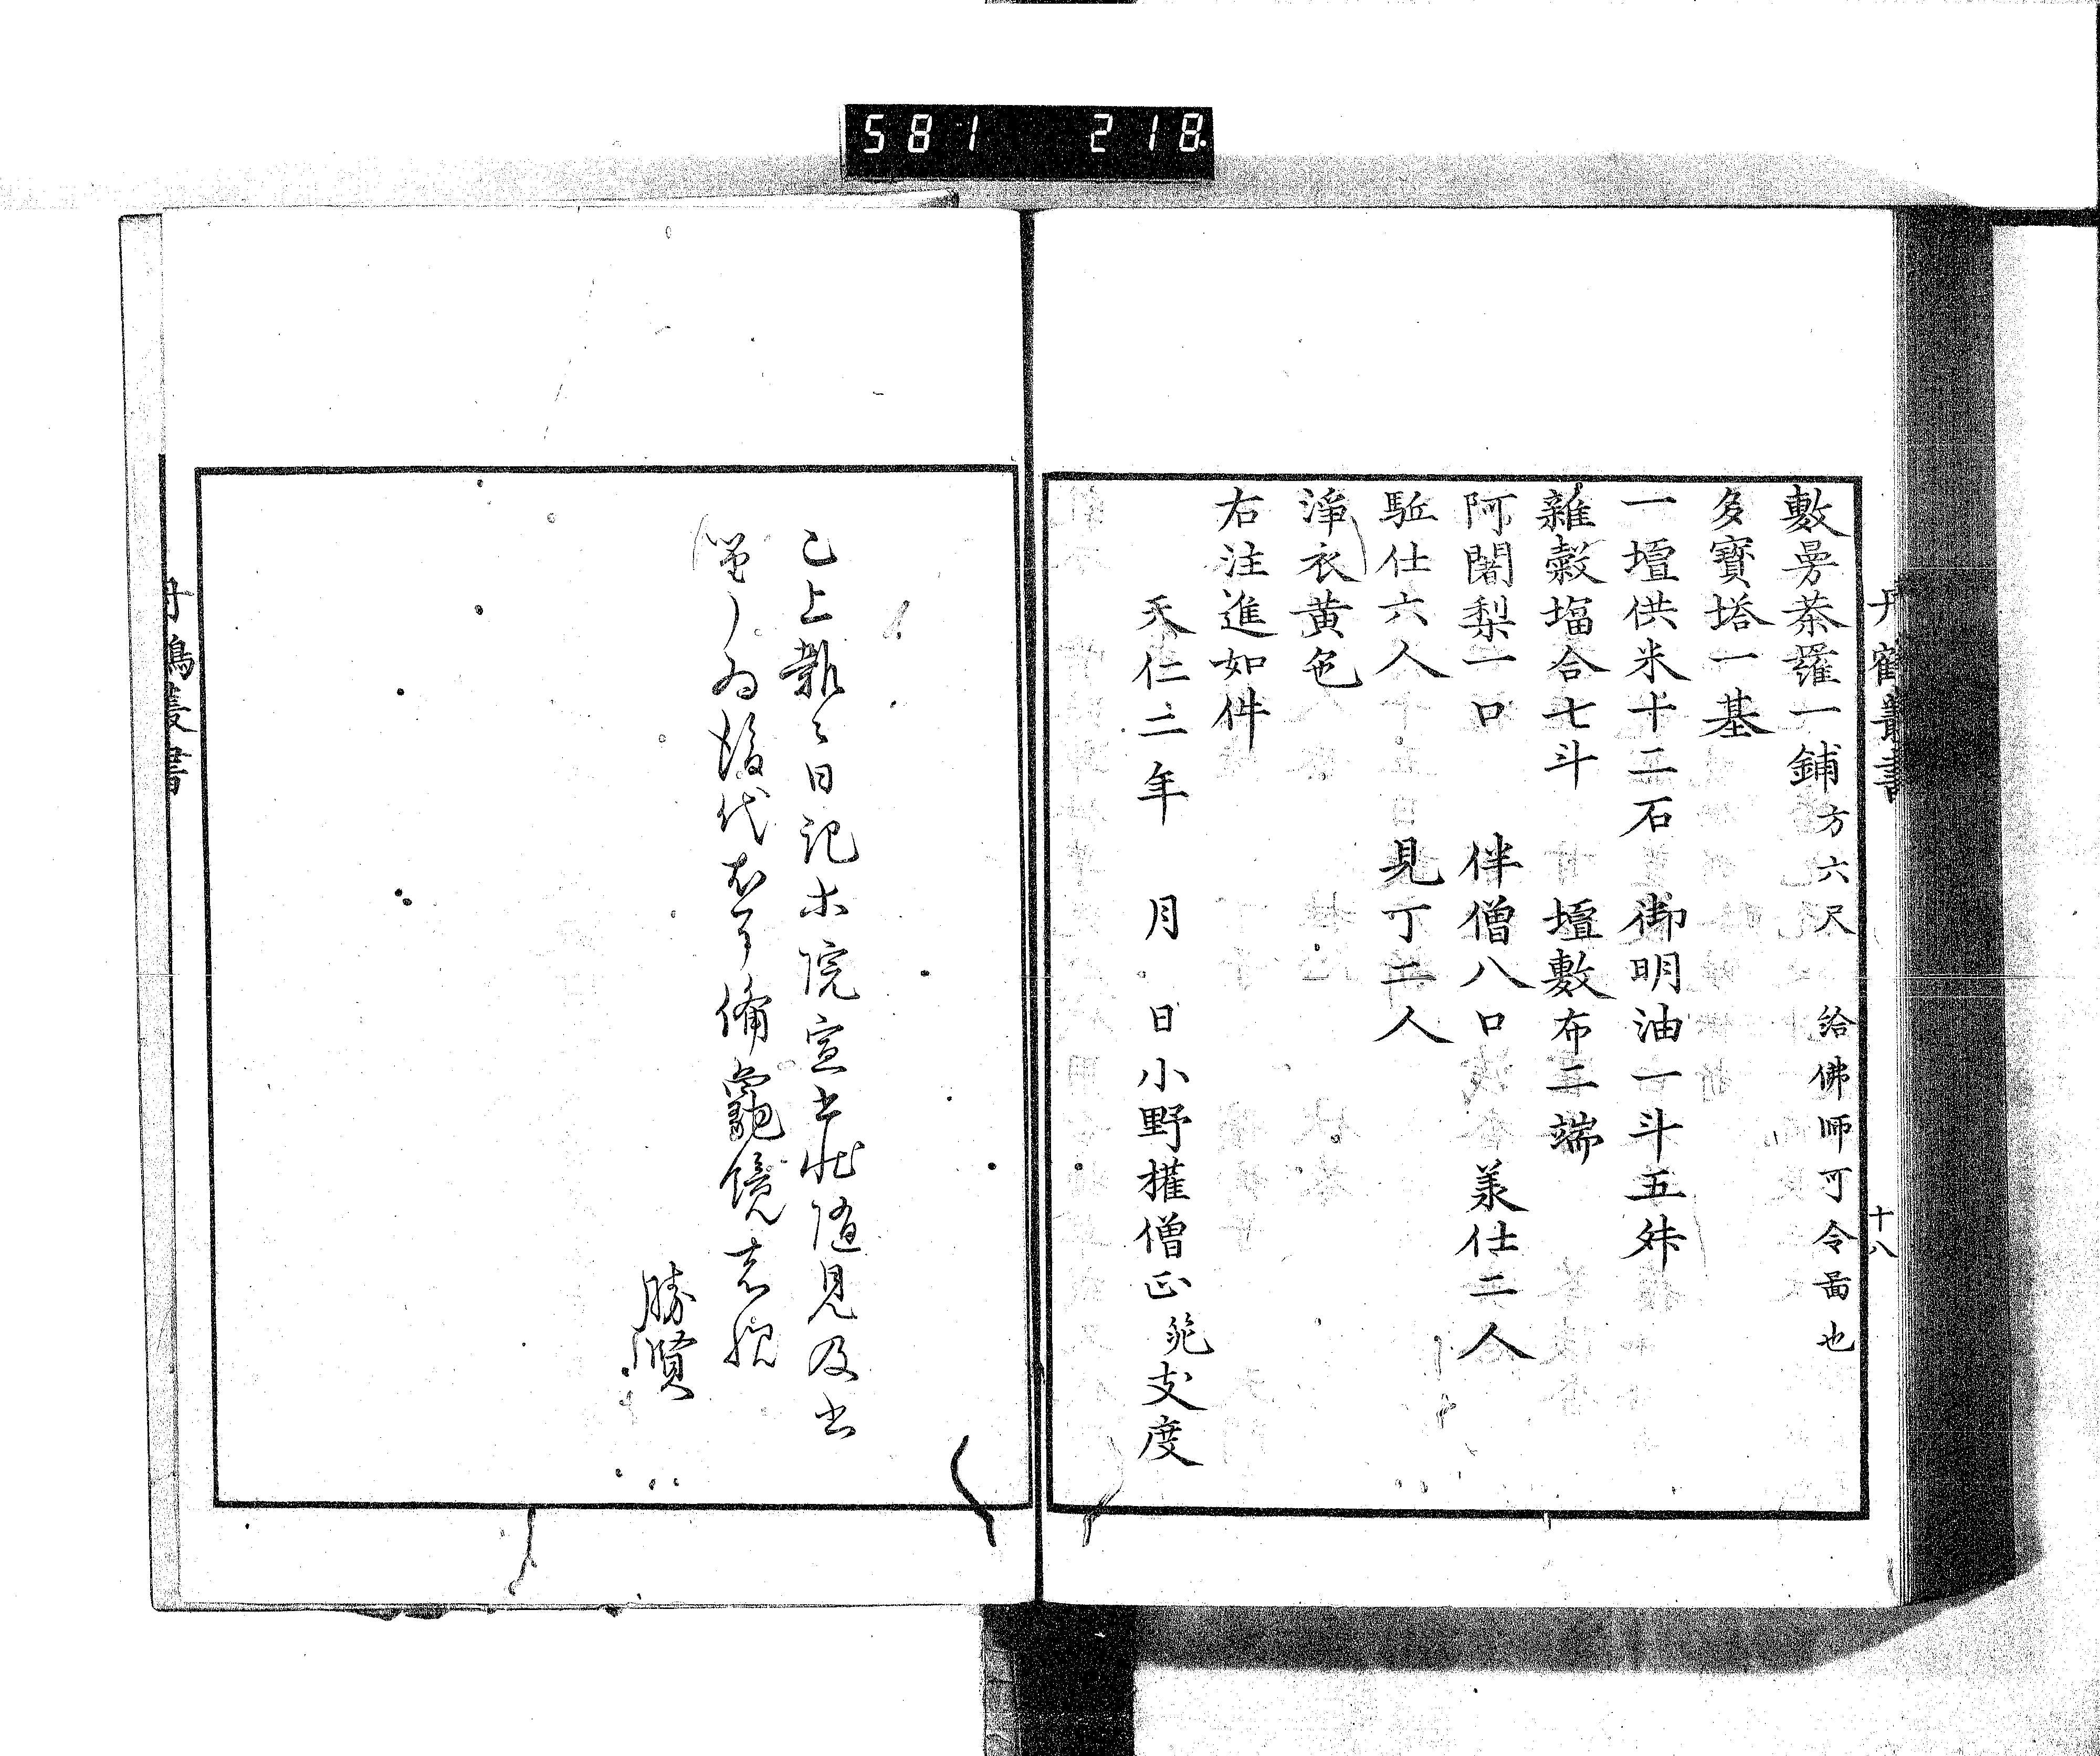 581 218
丹鶴叢書 十八
敷曼荼羅一鋪 方六尺 給佛師可令啚也
多寶塔一基
一壇供米十二石 御明油一斗五舛
雜穀塩合七斗 壇敷布二端
阿闍梨一口 伴僧八口 羕仕二人
駈仕六人 見丁二人
淨衣黄色
右注進如件
天仁二年 月 日小野權僧正範支度
已上雜々日記木院宣書状随見及書
為後代為備龜鏡
勝賢
丹鶴叢書